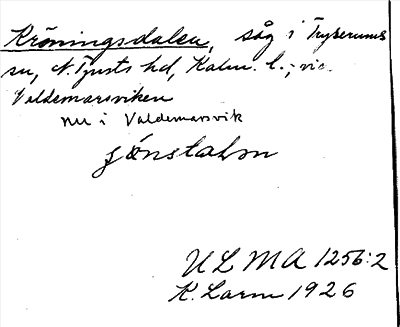 Kröningsdalen, såg i Tryserums
sn, N. Tjusts hd, Kalm. l.; vic.
Valdemarsviken
nu i Valdemarsvik
Grönstalsm
ULMA 1256:2
K. Larm 1926